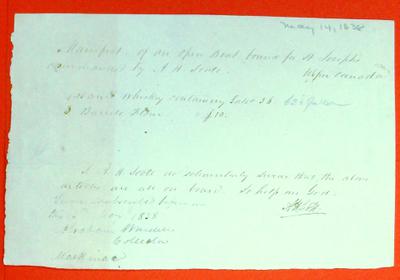 May 14, 1838
Manifest of an open Boat bound for St Josephs
commanded by A H Scott. Upper Canada
Whisky containing Galls 36
2 Barrels Flour $10.
I, A H Scott do solemnly Swear that the above
articles are all on board. So help me God.
Sworn & subscribed before me
May 1838
Abraham Wendell
Collector
Mackinac